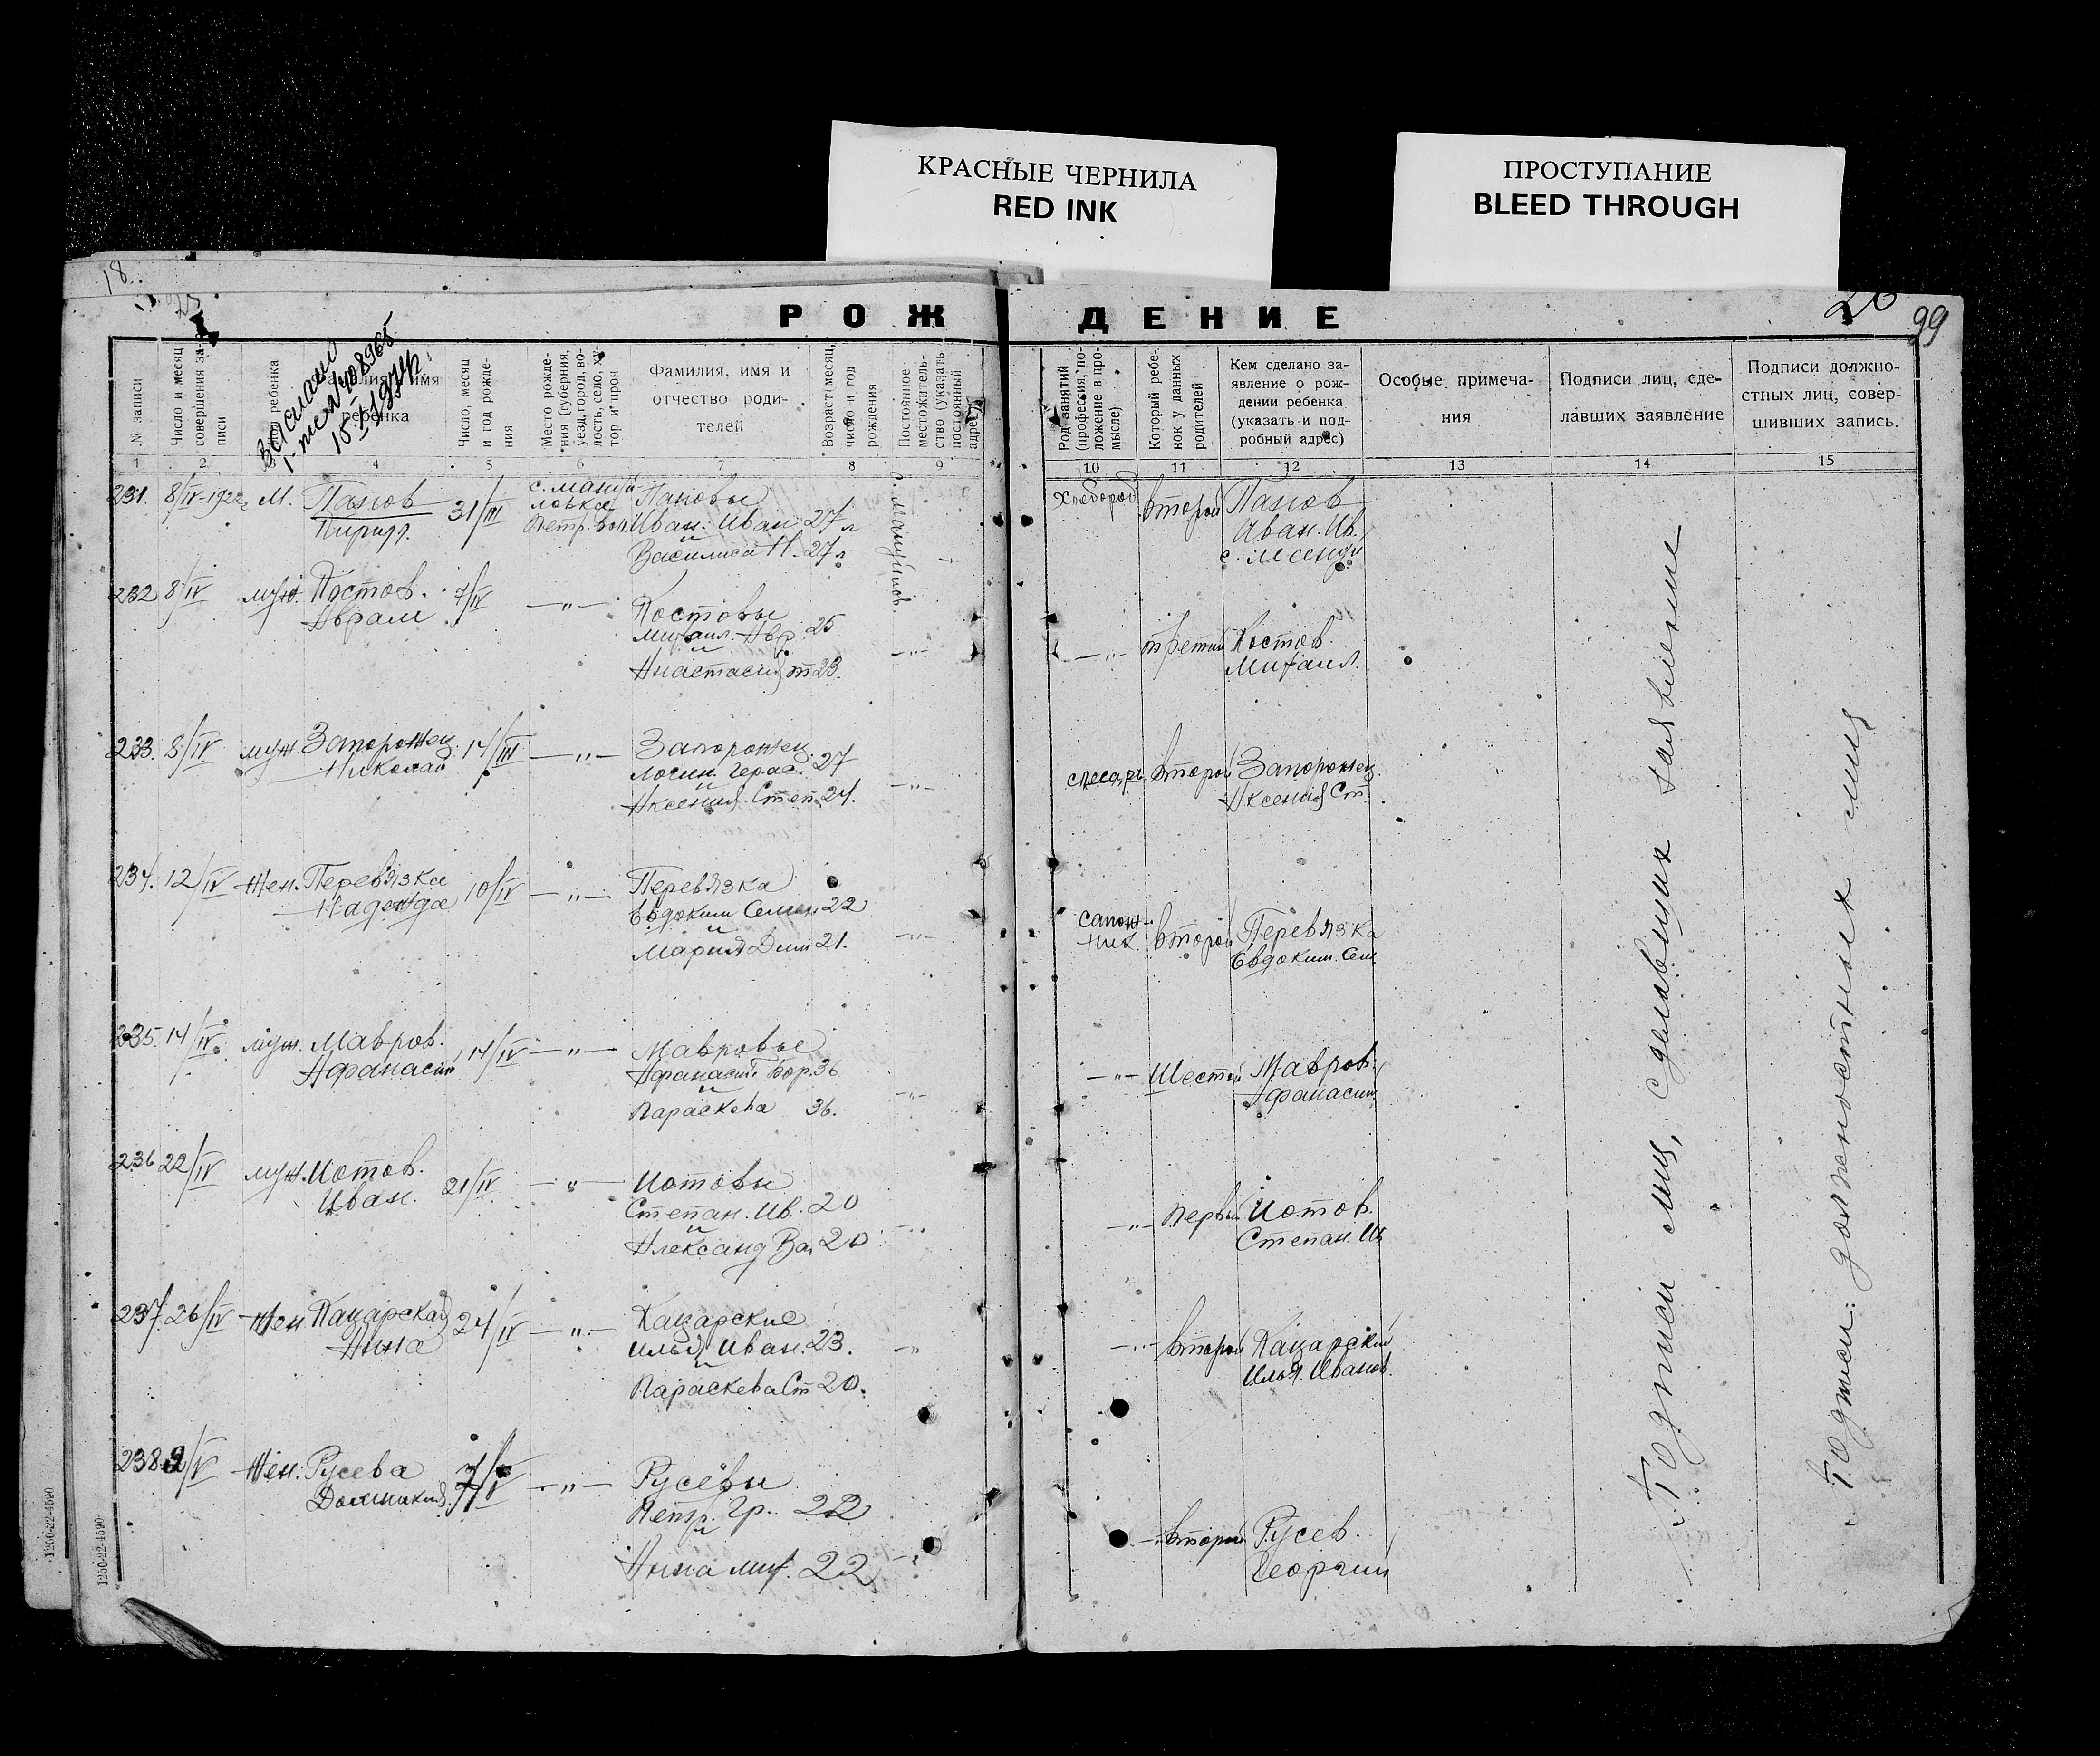 КРАСНЫЕ ЧЕРНИЛА
RED INK
ПРОСТУПАНИЕ
BLEED THROUGH
18.
РОЖДЕНИЕ
20
99
№ записи
Число и месяц совершения записи
ребенка
имя
ребенка
Число, месяц и год рождения
Место рождения (губерния, уезд, город, волость, село, хутор и проч
Фамилия, имя и отчество родителей
Возраст (месяц, число и год рождения
Постоянное местожительство (указать постоянный адрес)
Род занятий (профессия, положение в промысле)
Который ребенок у данных родителей
Кем сделано заявление о рождении ребенка (указать и подробный адрес)
Особые примечания
Подписи лиц, сделавших заявление
Подписи должностных лиц, совершивших запись.
1 2 3 4 5 6 7 8 9 10 11 12 13 14 15
231. 8/IV-1922 М. Панов 31/III Пановы Хлебороб второй Панов
Иван. Иван 27 л Иван. Ив.
Василиса 27 л
232 8/IV муж. Костов. 7/IV —〃— Костовы —〃— третий Костов.
Аврам Михаил. Авр. 25 Михаил.
и
Анастасия 23.
233. 8/IV муж. Запорожец 14/III —〃— Запорожец слесарь второй Запорожец
Николай Герас. 27 Аксения Ст.
и
Аксения. Степ. 24. —〃—
234. 12/IV Жен. Перевязка 10/IV —〃— Перевязка сапожник второй Перевязка
Надежда Евдоким Семен 22 Евдоким. Сем.
и
Мария Дим 21. —〃—
235. 14/IV муж. Мавров. 14/IV —〃— Мавровы —〃— Шестой Мавров.
Афанасий Афанасий Бор. 36 Афанасий
и
Параскева 36. —〃—
236 22/IV муж. Иотов. 21/IV —〃— Иотовы —〃— первый Иотов.
Иван. Степан. Ив. 20 Степан. Ив
и
Александ Ва 20 —〃—
237. 26/IV Жен Кацарская 24/IV —〃— Кацарские —〃— второй Кацарский
Анна Илья Иван. 23. Илья. Иванов.
и
Параскева Ст 20.
238 2/V Жен. Русева —〃— Русевы второй Русев.
Петр. Гр. 22 Георгий
и
Анна Мих. 22
Подписи лиц, сделавших заявление
Подписи должностных лиц
1250-22-4590
1250-22-4590